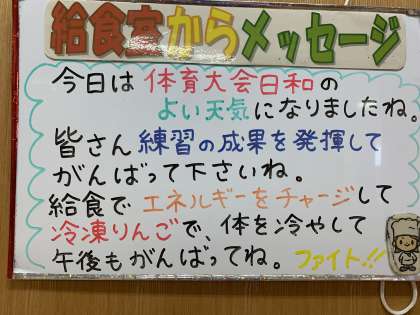 給食室からメッセージ
今日は体育大会日和の
よい天気になりましたね。
皆さん練習の成果を発揮して
がんばって下さいね。
給食でエネルギーをチャージして
冷凍りんごで、体を冷やして
午後もがんばってね。ファイト!!